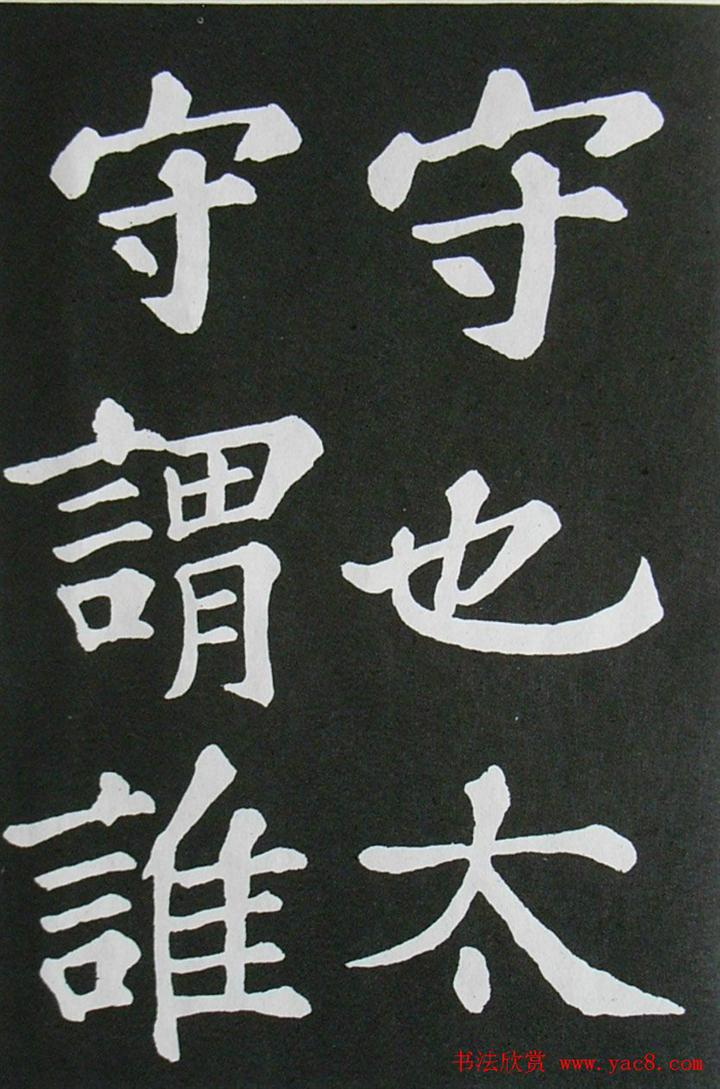 守也太
守謂誰
书法欣赏 www.yac8.com